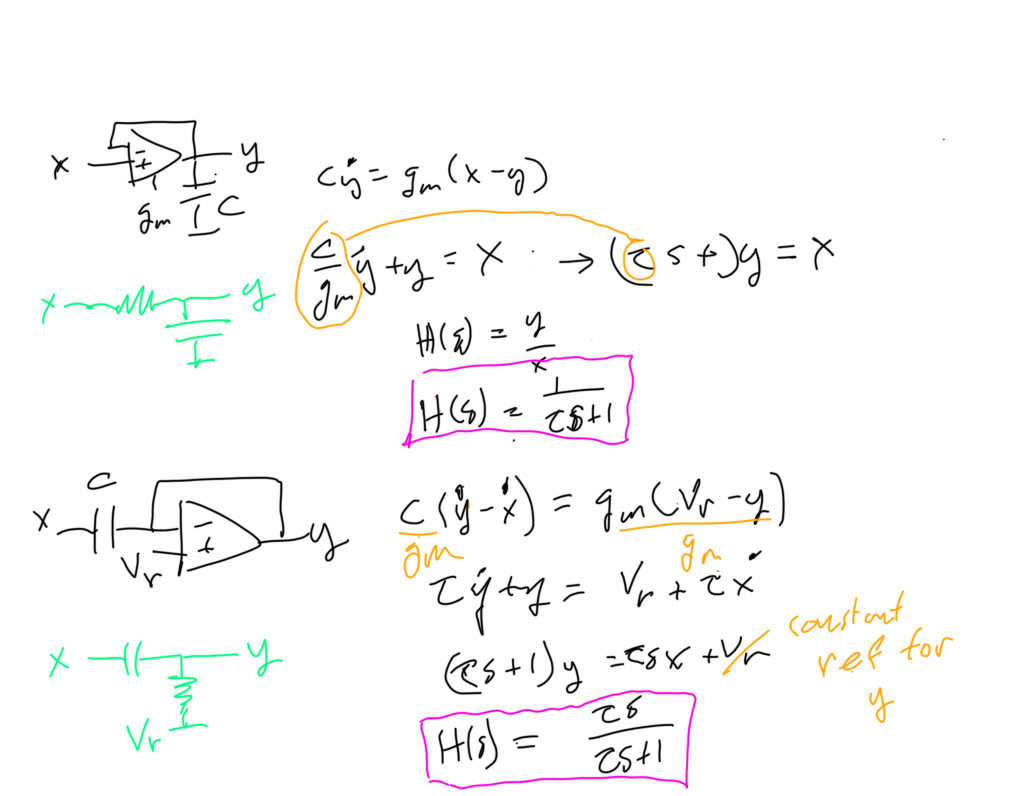 x
y
gm
C
Cẏ = gm(x-y)
C/gm ẏ + y = x → (τs+)y = x
x
y
H(s) = y/x
H(s) = 1/(τs+1)
C
x
y
Vr
C/gm (ẏ-ẋ) = gm(Vr-y)/gm
τẏ + y = Vr + τẋ
x
y
Vr
(τs+1)y = τsx + Vr
constant
ref for
y
H(s) = τs/(τs+1)